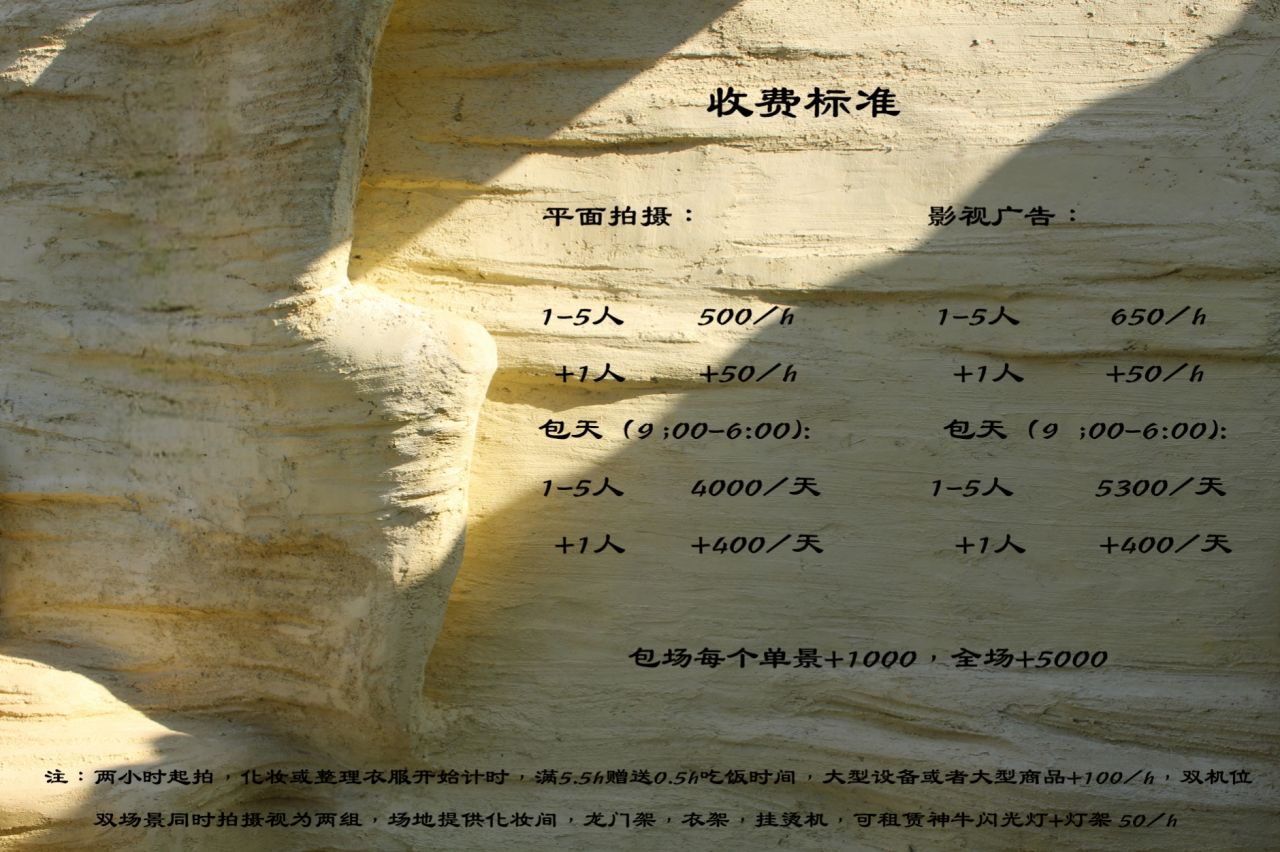 收费标准
平面拍摄： 影视广告：
1-5人 500/h 1-5人 650/h
+1人 +50/h +1人 +50/h
包天（9 ;00-6:00): 包天（9 ;00-6:00):
1-5人 4000/天 1-5人 5300/天
+1人 +400/天 +1人 +400/天
包场每个单景+1000，全场+5000
注：两小时起拍，化妆或整理衣服开始计时，满5.5h赠送0.5h吃饭时间，大型设备或者大型商品+100/h，双机位
双场景同时拍摄视为两组，场地提供化妆间，龙门架，衣架，挂烫机，可租赁神牛闪光灯+灯架 50/h